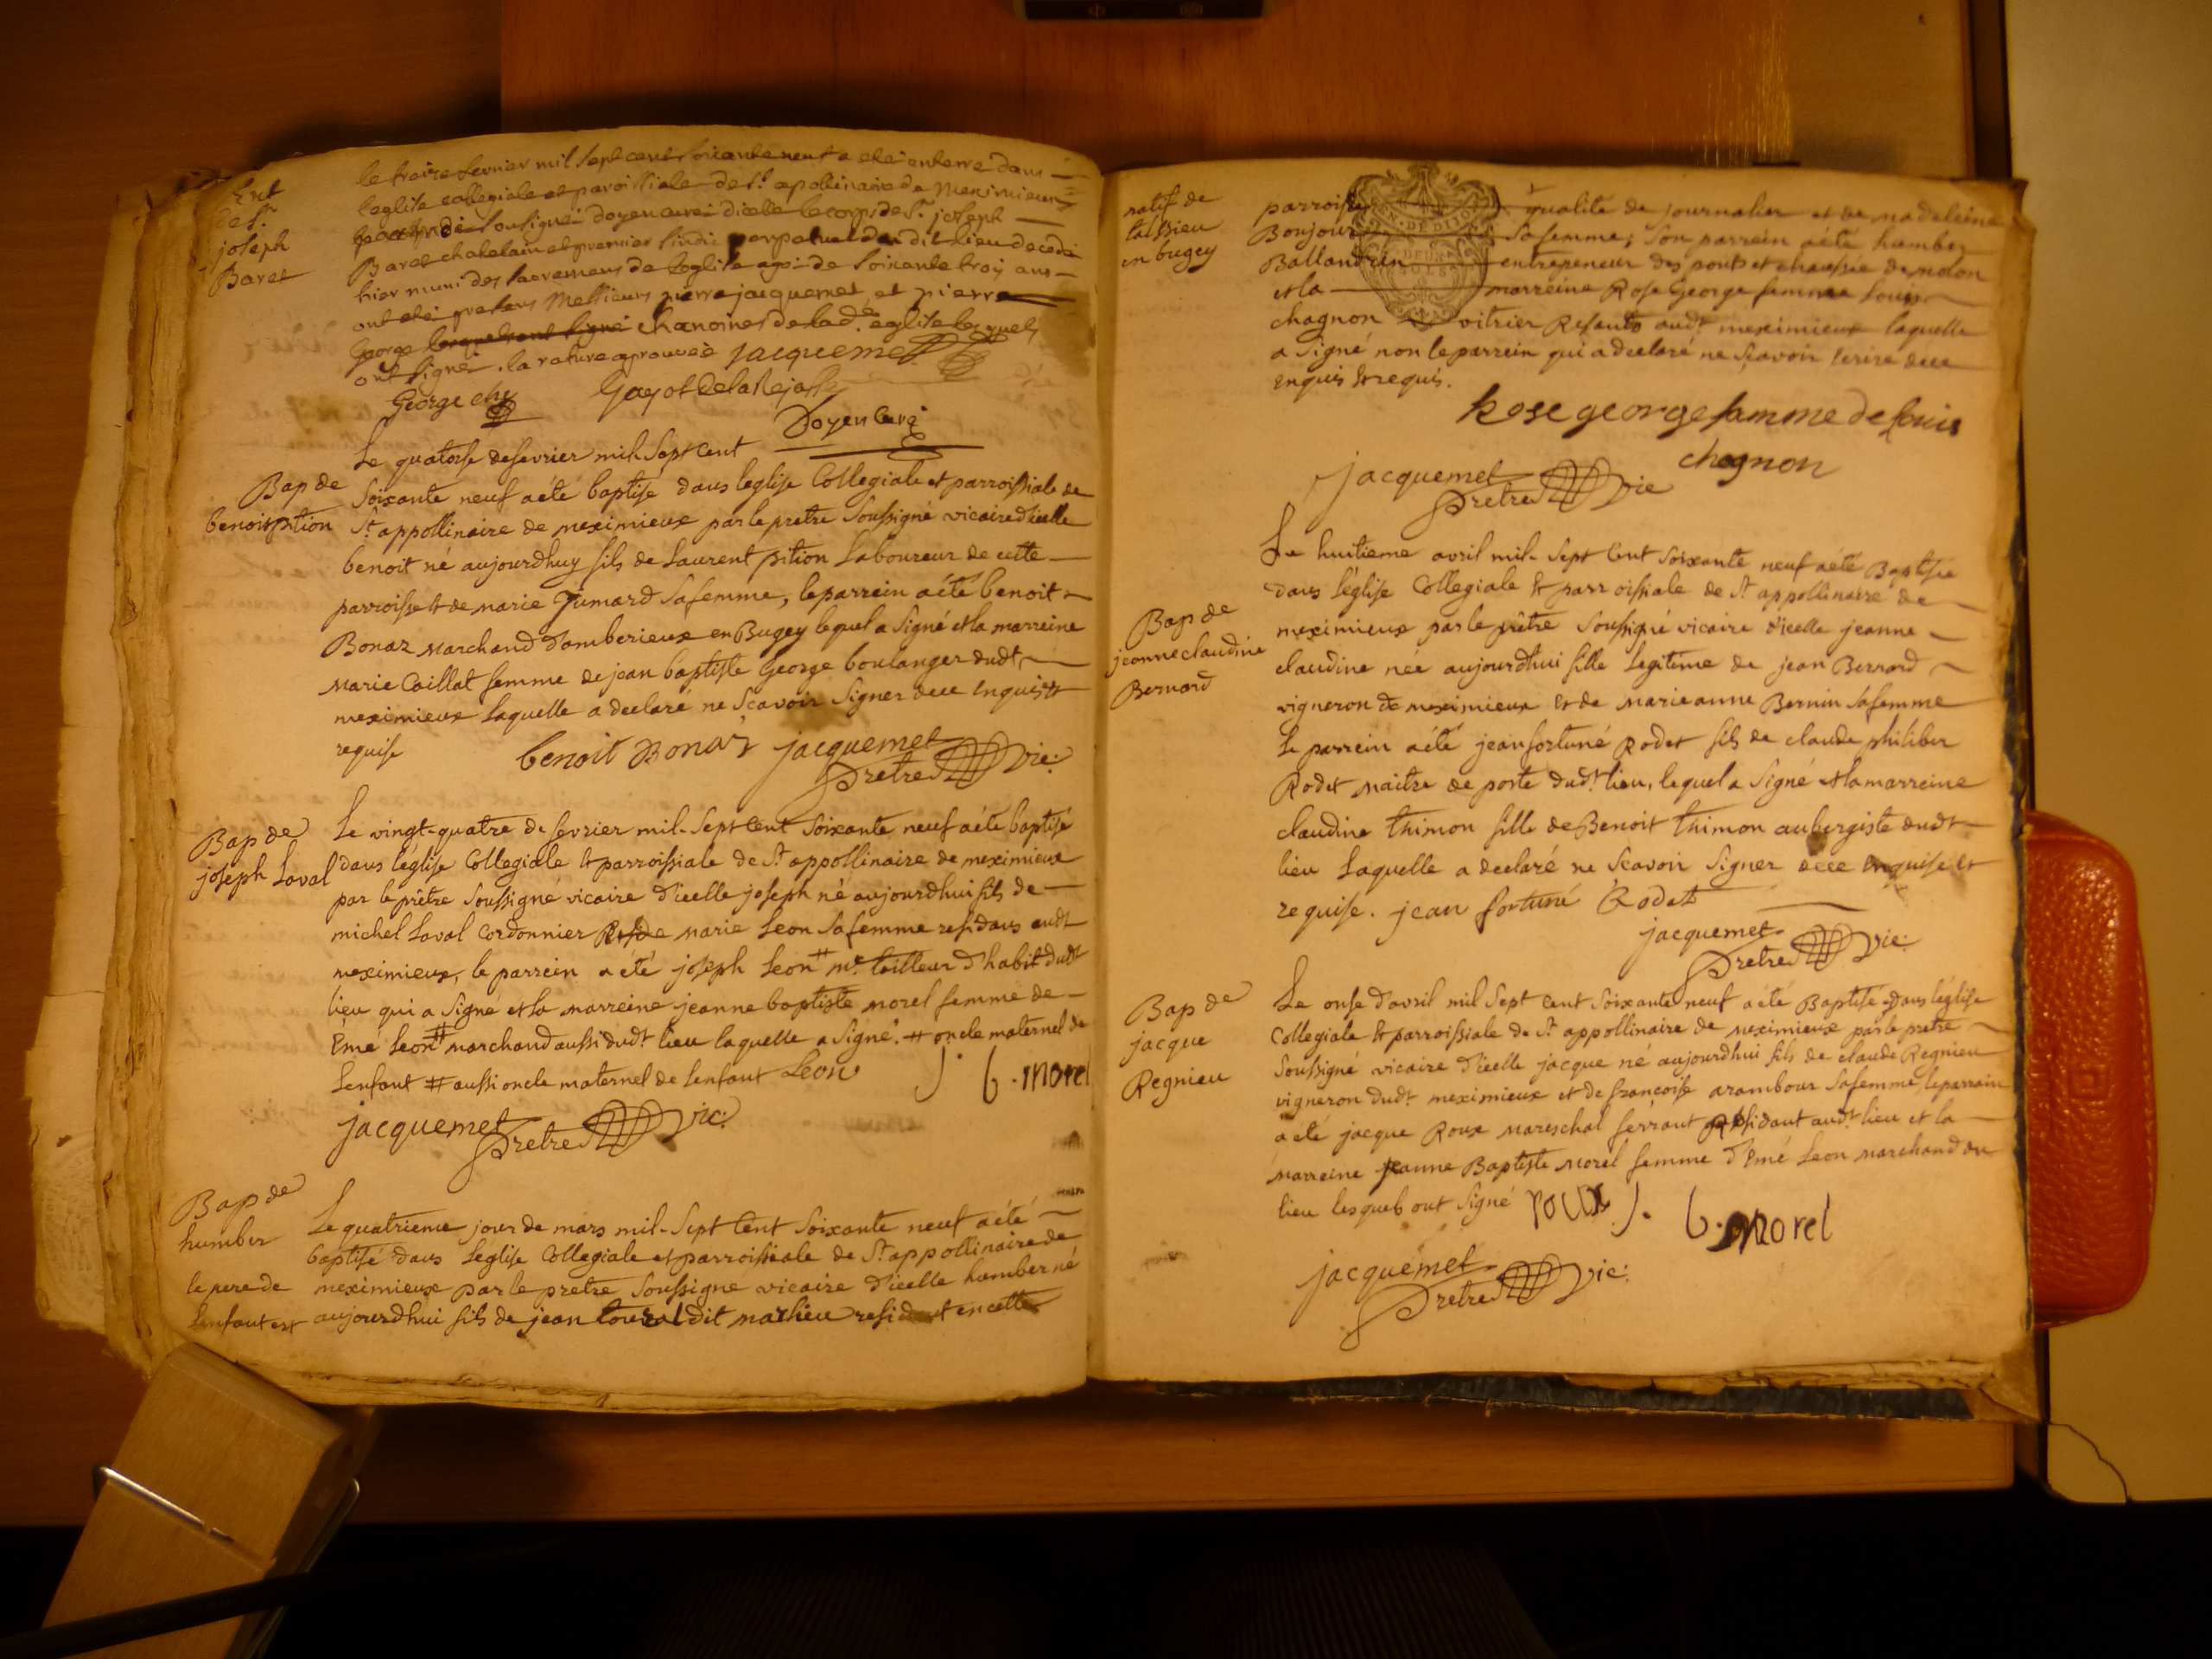 Ent
de Sr.
joseph
Baret
le treize fevrier mil sept cent soixante neuf a etei enterre dans
l'eglise collegiale et paroissiale de St. apollinaire de Meximieux
soussignei doyen curei dicelle le corps de Sr. joseph
Baret chatelain et premier sindic perpetuel du dit lieu decedei
hier muni des sacremens de leglise agei de soixante troy ans
ont etei presens Messieurs pierre jacquemet et pierre
George lesquels ont signei chanoines de lad.e eglise lesquels
ont signei. la rature aprouveè jacquemet
George che Gayot Dela
Doyen Curé
Bap de
benoit pition
Le quatorse de fevrier mil-sept cent
soixante neuf a été baptise dans leglise Collegiale et parroissiale de
St. appollinaire de meximieux par le pretre soussigné vicaire dicelle
benoit né aujourdhuy fils de Laurent pition Laboureur de cette
parroisse et de marie Jumard sa femme, le parrein a été benoit
Bonaz marchand d'amberieux en Bugey lequel a signé et la marreine
marie Caillat femme de jean baptiste George boulanger dudt
meximieux laquelle a declaré ne scavoir signer dece enquise et
requise
benoit Bonaz jacquemet
Pretre vic:
Bap de
joseph Laval
Le vingt-quatre de fevrier mil-sept cent soixante neuf a été baptisé
dans l'églisse Collegiale et parroissiale de St appollinaire de meximieux
par le prêtre soussigné vicaire d'icelle joseph né aujourdhui fils de
michel Laval cordonnier et de marie Leon sa femme residans audt
meximieux, le parrein a été joseph Leon # me. tailleur d'habit dudt
lieu qui a signé et la marreine jeanne baptiste morel femme de
Emé Leon # marchand aussi dudt lieu laquelle a signé. # oncle maternel de
Lenfant # aussi oncle maternel de lenfant Leon J. b. morel
jacquemet
Pretre vic:
Bap de
humber
le pere de
lenfant est
Le quatrieme jour de mars mil-sept cent soixante neuf a été
baptisé dans léglise Collegiale et parroissiale de St. appollinaire de
meximieux par le pretre soussigné vicaire d'icelle humber né
aujourdhui fils de jean dit mathieu resident en cette
natif de
laissieu
en bugey
parroisse qualité de journalier et de madeleine
Bonjour sa femme; son parrein a été humber
Ballandrin entrepeneur des ponts et chaussée de molon
et la marreine Rose George femme Louis
chagnon vitrier Resants audt meximieux laquelle
a signé non le parrein qui a declaré ne scavoir ecrire dece
enquis et requis.
Rose george famme de louis
chagnon
jacquemet
Pretre vic
Bap de
jeanne claudine
Bernard
Le huitieme avril mil-sept cent soixante neuf a été Baptisée
dans l'église Collegiale et parroissiale de St appollinaire de
meximieux par le prêtre soussigné vicaire dicelle jeanne
claudine née aujourdhui fille legitime de jean Bernard
vigneron de meximieux et de marie anne Bernin sa femme
Le parrein a été jean fortuné Rodet fils de claude philiber
Rodet maitre de poste dudt. lieu, lequel a signé et la marreine
claudine thimon fille de Benoit thimon aubergiste dudt
lieu laquelle a declaré ne scavoir signer dece enquise et
requise. jean fortuné Rodet
jacquemet
Pretre vic:
Bap de
jacque
Regnieu
Le onse d'avril mil sept cent soixante neuf a été Baptisé dans l'église
Collegiale et parroissiale de St appollinaire de meximieux par le pretre
soussigné vicaire d'icelle jacque né aujourdhui fils de claude Regnieu
vigneron dudt. meximieux et de francoise arambour sa femme, le parrain
a été jacque Roux mareschal ferrant residant audt lieu et la
marreine jeanne Baptiste morel femme d'Emé Leon marchand du
lieu lesquels ont signé roux J. b. morel
jacquemet
Pretre vic: